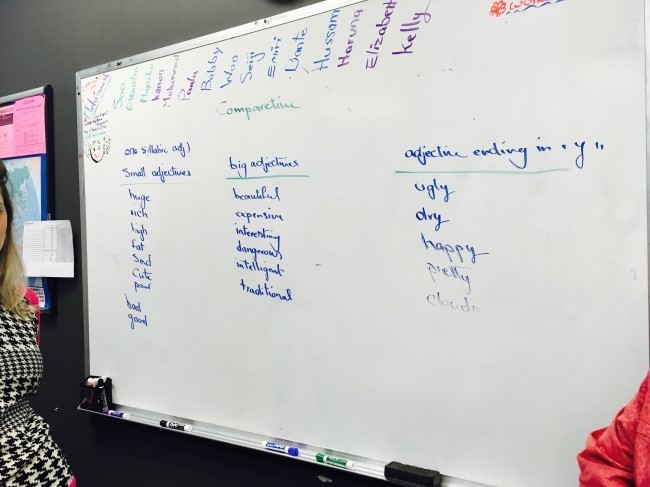 Paula
Bobby
Woo
Seiji
Emiri
Dante
Hussam
Haruna
Elizabeth
Kelly
Comparetive
one sillabic adj)
Small adjectives
huge
rich
high
fat
Sad
Cute
poor
bad
good
big adjectives
beautiful
expensive
interesting
dangerous
intelligent
traditional
adjective ending in "y"
ugly
dry
happy
pretty